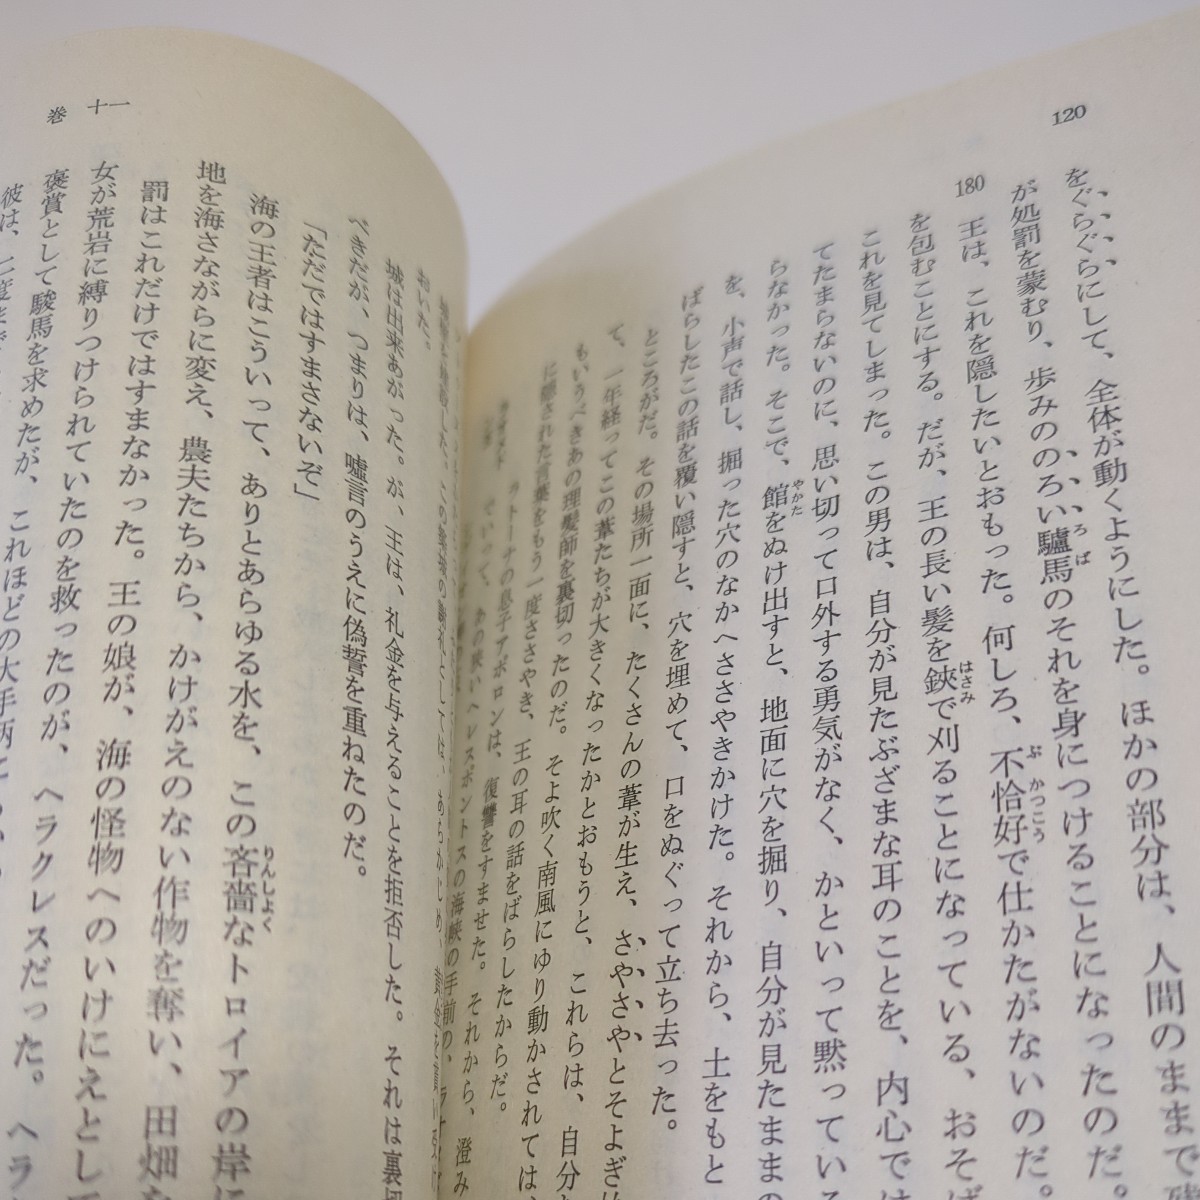 120
をぐらぐらにして、全体が動くようにした。ほかの部分は、人間のままで
が処罰を蒙むり、歩みののろい驢馬のそれを身につけることになったのだ。
ろば
180
王は、これを隠したいとおもった。何しろ、不恰好で仕かたがないのだ。
ぶかっこう
を包むことにする。だが、王の長い髪を鋏で刈ることになっている、おそば
はさみ
これを見てしまった。この男は、自分が見たぶざまな耳のことを、内心では
てたまらないのに、思い切って口外する勇気がなく、かといって黙っている
らなかった。そこで、館をぬけ出すと、地面に穴を掘り、自分が見たままの
やかた
を、小声で話し、掘った穴のなかへささやきかけた。それから、土をもと
ばらしたこの話を覆い隠すと、穴を埋めて、口をぬぐって立ち去った。
ところがだ。その場所一面に、たくさんの葦が生え、さやさやとそよぎ
て、一年経ってこの葦たちが大きくなったかとおもうと、これらは、自分
もいうべきあの理髪師を裏切ったのだ。そよ吹く南風にゆり動かされては、
に隠された言葉をもう一度ささやき、王の耳の話をばらしたからだ。
ラトーナの息子アポロンは、復讐をすませた。それから、澄み
でいって、あの狭いヘレスポントスの海峡の手前の、
巻 十一
おいた。
城は出来あがった。が、王は、礼金を与えることを拒否した。それは裏切
べきだが、つまりは、嘘言のうえに偽誓を重ねたのだ。
「ただではすまさないぞ」
海の王者はこういって、ありとあらゆる水を、この吝嗇なトロイアの岸に
りんしょく
地を海さながらに変え、農夫たちから、かけがえのない作物を奪い、田畑を
罰はこれだけではすまなかった。王の娘が、海の怪物へのいけにえとして
女が荒岩に縛りつけられていたのを救ったのが、ヘラクレスだった。ヘラ
褒賞として駿馬を求めたが、これほどの大手柄
彼は、二度まで